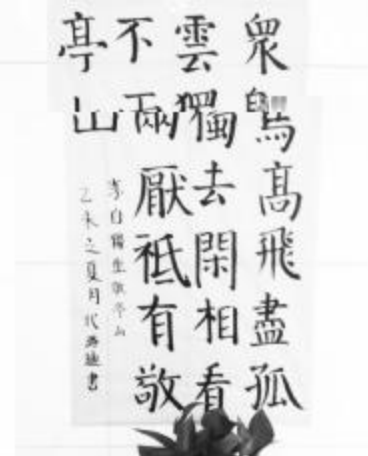 眾鳥高飛盡孤
雲獨去閑相看
不兩厭祗有敬
亭山
李白獨坐敬亭山
乙未之夏月書